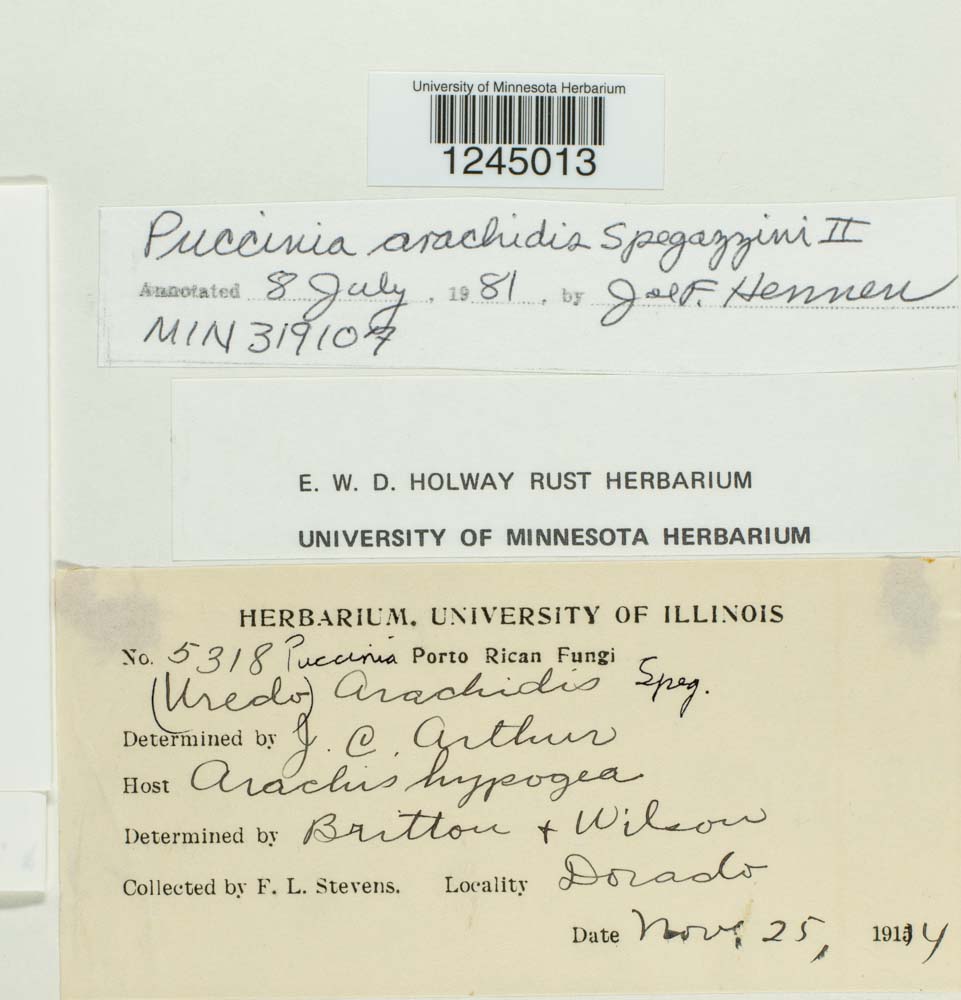 University of Minnesota Herbarium
1245013
Puccinia arachidis Spegazzini II
Annotated 8 July, 1981, by Joe F. Hennen
MIN 319107
E. W. D. HOLWAY RUST HERBARIUM
UNIVERSITY OF MINNESOTA HERBARIUM
HERBARIUM, UNIVERSITY OF ILLINOIS
No. 5318 Puccinia Porto Rican Fungi
(Uredo) Arachidis Speg.
Determined by J. C. Arthur
Host Arachis hypogea
Determined by Britton + Wilson
Collected by F. L. Stevens. Locality Dorado
Date Nov. 25, 1914